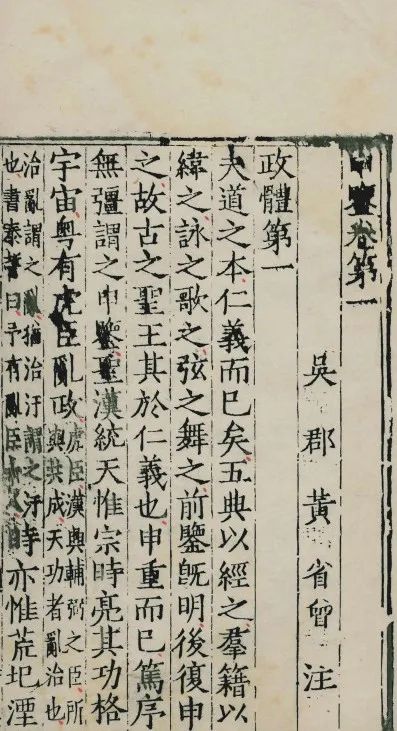 申鑒卷第一
吳郡黃省曾注
政體第一
夫道之本仁義而已矣五典以經之羣籍以
緯之詠之歌之弦之舞之前鑒旣明後復申
之故古之聖王其於仁義也申重而已篤序
無彊謂之申鑒聖漢統天惟宗時亮其功格
宇宙粵有虎臣亂政
虎臣漢興輔弼之臣所
與共成天功者亂治也
治亂謂之亂猶治汙謂之汙
也書泰誓曰予有亂臣十人
時亦惟荒圯湮